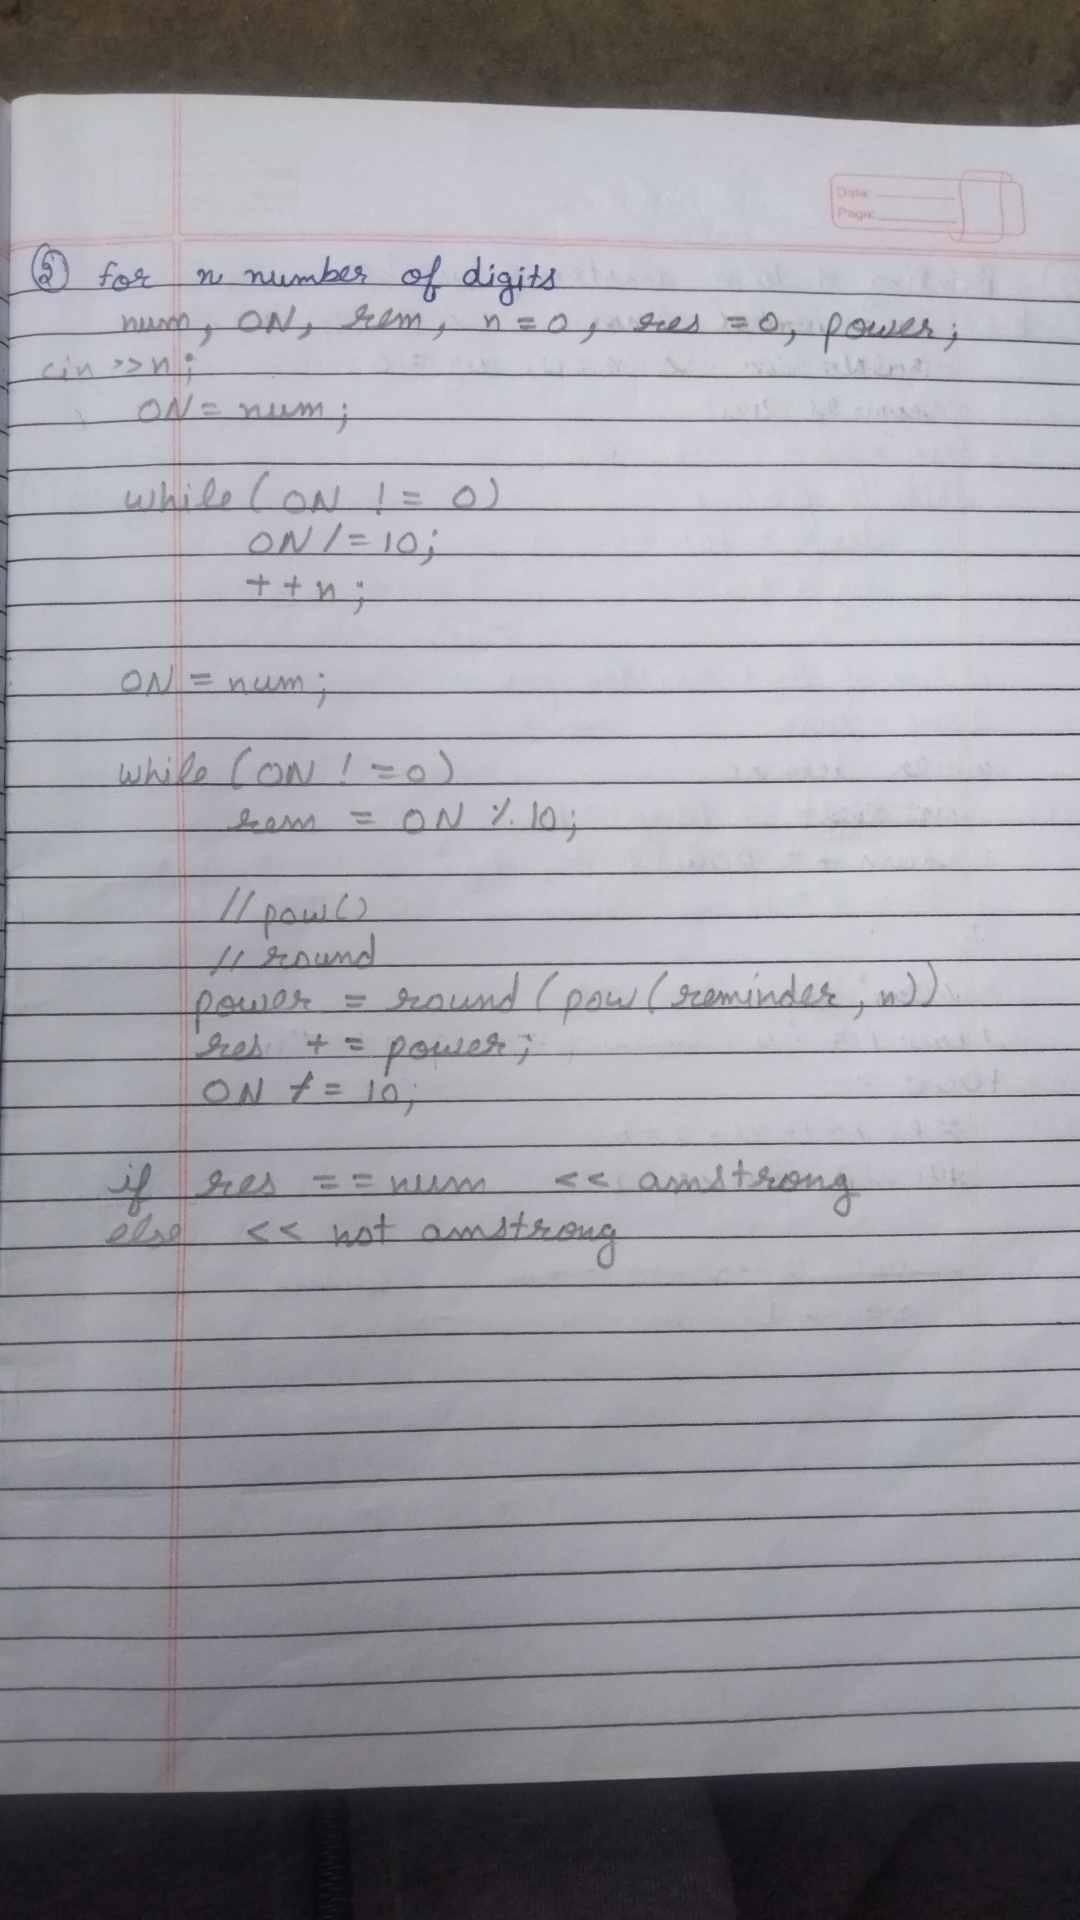 Date:
Page:
② for n number of digits
num, ON, rem, n = 0, res = 0, power;
cin >> n;
ON = num;
while ( ON ! = 0)
ON / = 10;
+ + n ;
ON = num;
while (ON ! = 0)
rem = ON % 10;
// pow()
// round
power = round (pow (reminder, n))
res + = power;
ON / = 10;
if res = = num << amstrong
else << not amstrong